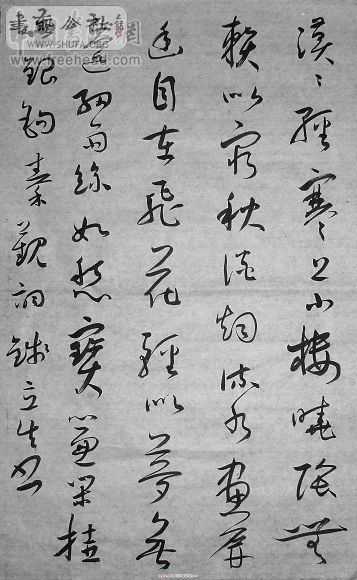 漠〻輕寒上小樓曉陰無
賴似窮秋淡煙流水畫屏
幽自在飛花輕似夢無
邊細雨絲如愁寶簾閑挂
銀鉤秦觀詞
WWW.SHUFA.ORG